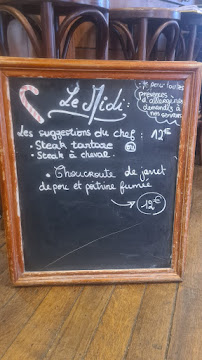 Le Midi:
* pour toutes
présences
d'allergènes
demandez à
nos serveurs
Les suggestions du chef : 12€
• Steak tartare ou
• Steak à cheval
• Choucroute de jarret
de porc et poitrine fumée
: 12€